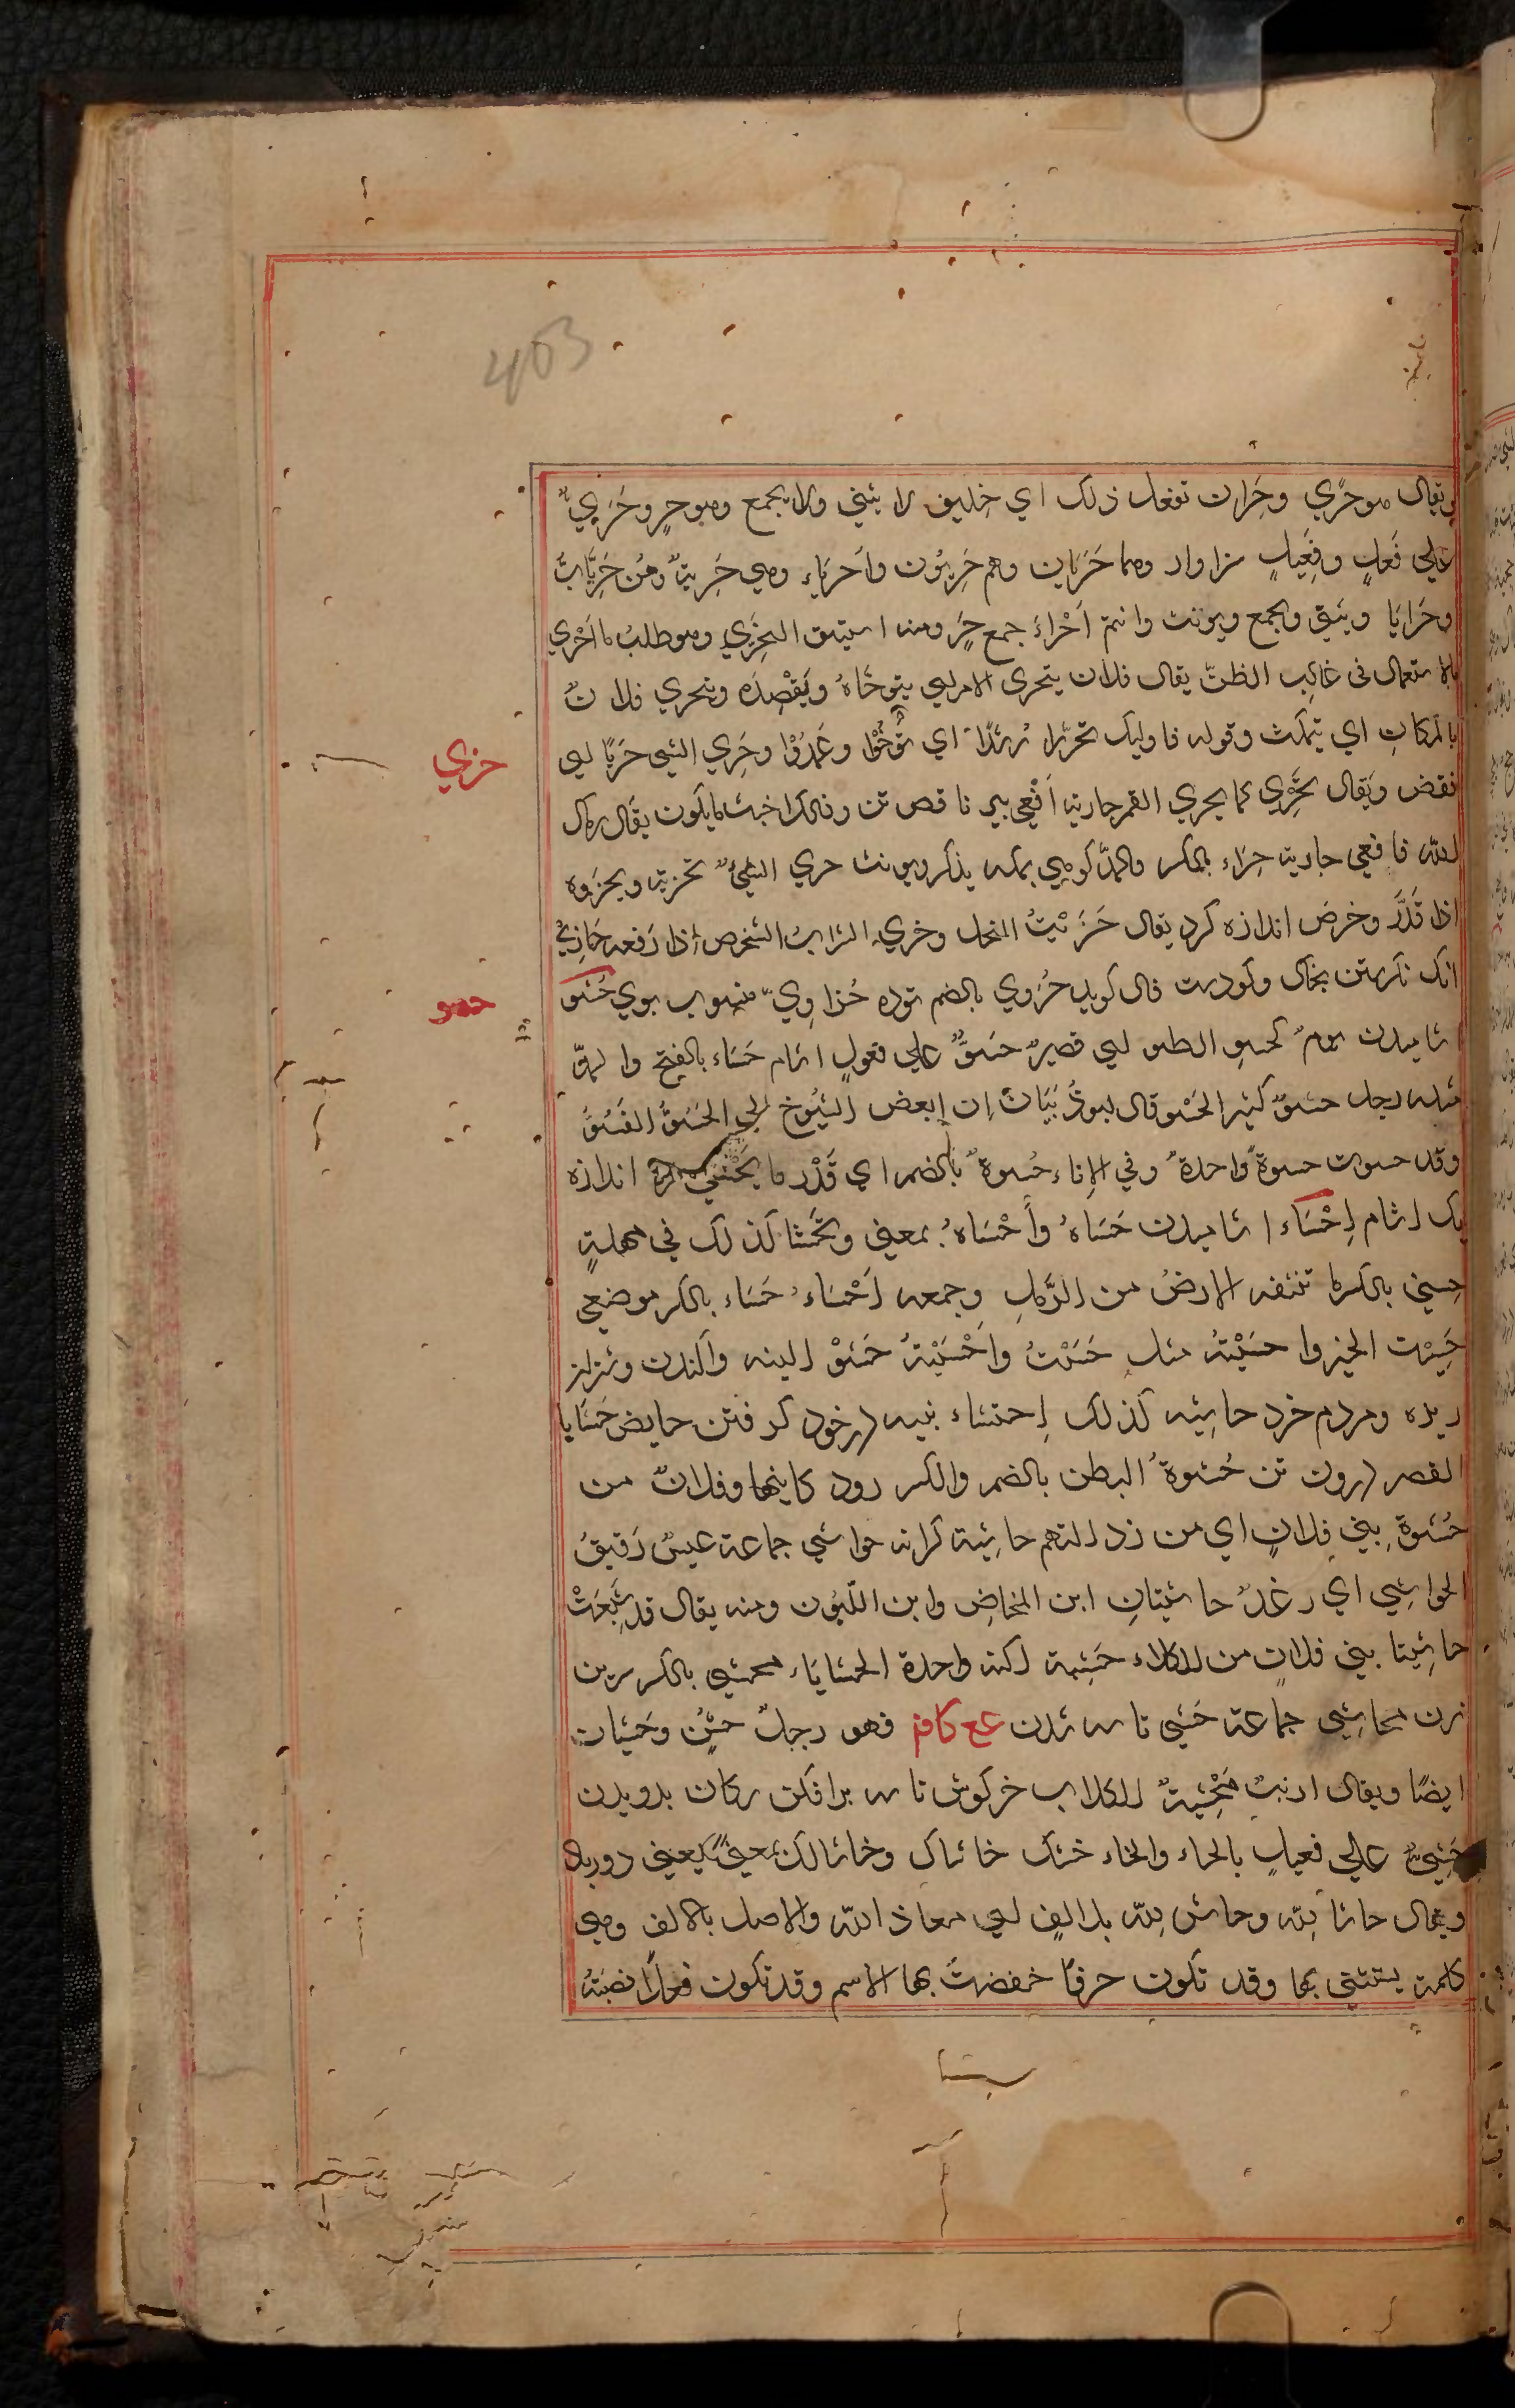 403
ويقال هو حَرًي وحَران تفعل ذلک اي خليق لا يثني ولا يجمع وهو حرٍ وحَرِيٌّ
علي فَعلٍ وفَعِيلٍ سزاوار وهما حَرَيان وهم حَرِيّون واَحرياء وهي حَرِيةٌ وهُن حَرِيّاتٌ
وحَرايَا ويثني ويجمع ويونث وانتم اَحْراءَ جمع حَرٍ ومنه اشتق التحري وهو طلبُ ما اَحْري
بالاستعمال فى غالِب الظنّ يقال فلان يتحرى الامر اي يتوخّاهُ ويَقْصِدَه ويتحري فلانٌ
بالمکانِ اي يتمکث وقوله فاوليک تحرّوا رُشدًا اي توَخَّوْا وعَمدُوْا وحَرِي الشي حَرْيًا اي
حري
نقص ويقال يَحْرِي کما يحري القمر حارية اَفْعي پير ناقص تن وذالک اخبث ما يکون يقال رماه
الله فافعي حارية حِرَاء بالکسر والمدّ کوهي بمکه يذکر ويونث حزي الشيءٌ تحزية ويحزوه
اذا قَدَّرَ وخرصَ اندازه کرد يقال حَزَيْتُ النخل وحزي السراب الشخص اذا رَفعه حَازِيٌ
انک نکرستن بخال وکودهت فال کويد حُزوي بالضم توده حُزاوِيّ منسوب بوي حَسْو
حسو
اشاميدن يومٌ کحسوِ الطير اي قصيرٌ حَسُوٌّ علي فعولٍ اشام حَسَاء بالفتح والمدّ
مثله رجل حسوٌ کثير الحَسْو قال ابوذُبْيَان ان ابعض الشيُوخ الي الحَسُوُّ الفَسُوُّ
وقد حسوت حسوةً واحدةٌ وفي الاناء حُسوةٌ بالضم اي قَدْر ما يحْتسي مرة اندازه
يک اشام اِحْسَاء اشاميدن حَسَاهُ وأَحْسَاهُ بمعني وتَحَسّا کذلک في مهلةٍ
حِسي بالکسر ما تنشفه الارضُ من الرَّمل وجمعه اَحْسَاءُ حَسَاء بالکسر موضعي
حَسِيْت الخبر واحسَيْتُه مثل حَسَسْتُ واَحْسَيْتهُ حَشوْ اکينه واکندن وشتران
ريزه ومردم خرد حاشيه کذلک اِحتشاء پنبه در خود کرفتن حايض حَشَايا
القصر درون تن حُشوةُ البطن بالضم والکسر رود کاينها وفلانٌ من
حُشوةِ بني فلانٍ اي من رذالتهم حاشية کرانه حواشي جماعة عيشٌ رَقيقُ
الحواشِي اي رغدٌ حاشيتانِ ابن المخاضِ وابن اللّبون ومنه يقال قد شَبَعَتْ
حاشِيتا بني فلانٍ من الکلاء حَشِية اکنه واحدة الحشايَاء محشي بالکسر سرين
زن محاشِي جماعة حَشي تاسه شدن عع کافم فهو رجلٌ حشٍ وحَشيان
ايضًا ويقال ارنبٌ مُحْشِيةٌ الکلاب خرکوش تاسه برافکن سکان بدويدن
حَشِيٌّ علي فعيلٍ بالحاء والخاء خشک حاشاک وحاشا لک بمعنيً يعني دور باد
ويقال حاشا للّه وحاش للّه بلا الفٍ اي معاذ اللّه والاصل بالالف وهي
کلمة يستثني بها وقد تکون حرفًا خفضتَ بها الاسم وقد تکون فعلًا نصبتَ